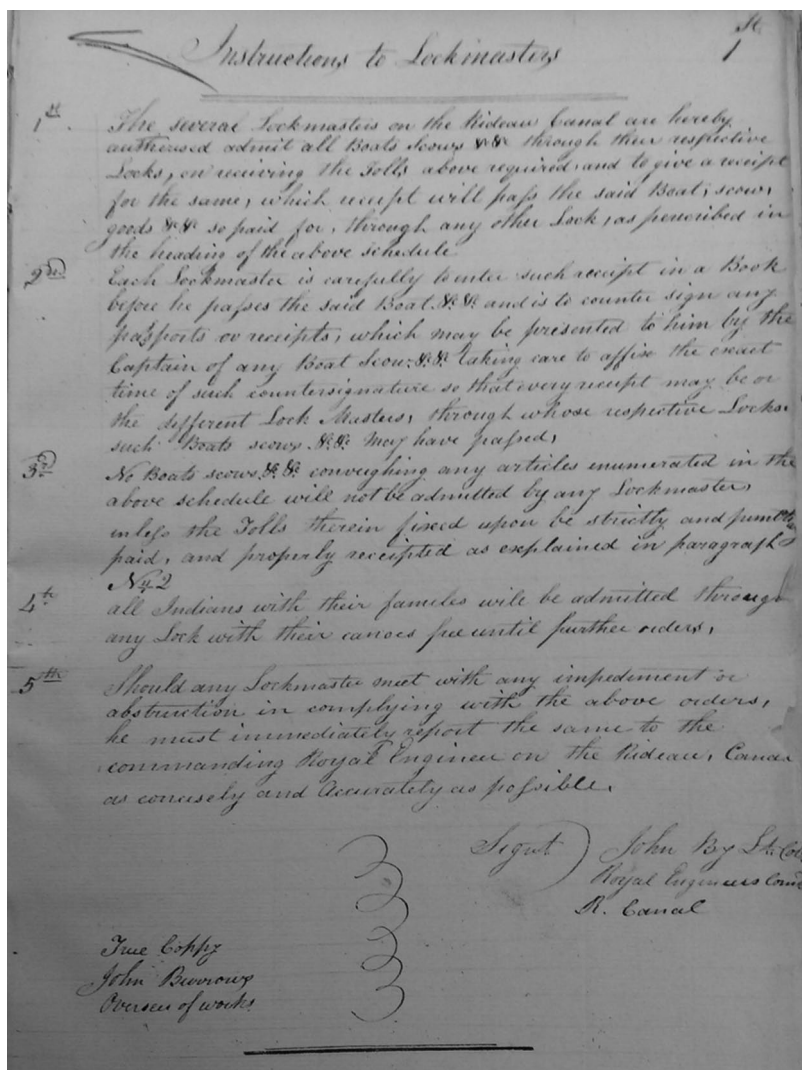 1
Instructions to Lockmasters
1st The several Lockmasters on the Rideau Canal are hereby
autherised admit all Boats Scows &c &c through their respective
Locks, on receiving the Tolls above required, and to give a receipt
for the same, which receipt will pass the said Boat, scow,
goods &c &c so paid for, through any other Lock, as perscribed in
the heading of the above schedule
2nd Each Lockmaster is carefully to enter such receipt in a Book
before he passes the said Boat &c &c and is to counter sign any
passports or receipts, which may be presented to him by the
Captain of any Boat Scow, &c &c taking care to affix the exact
time of such countersignature so that every receipt may be or
the different Lock Masters, through whose respective Locks
such Boats scows &c &c may have passed,
3rd No Boats scows &c &c conveighing any articles enumerated in the
above schedule will not be admitted by any Lockmaster,
unless the Tolls therein fixed upon be strictly and
paid, and properly receipted as explained in paragraph
No 2
4th all Indians with their familes will be admitted through
any Lock with their canoes free until further orders,
5th Should any Lockmaster meet with any impediment or
abstruction in complying with the above orders,
he must immediately report the same to the
commanding Royal Engineer on the Rideau, Canal
as concisely and Accurately as possible.
Signt John By Lt Col
Royal Engineers Comd
R. Canal
True Coppy
John Burrows
Overseer of works